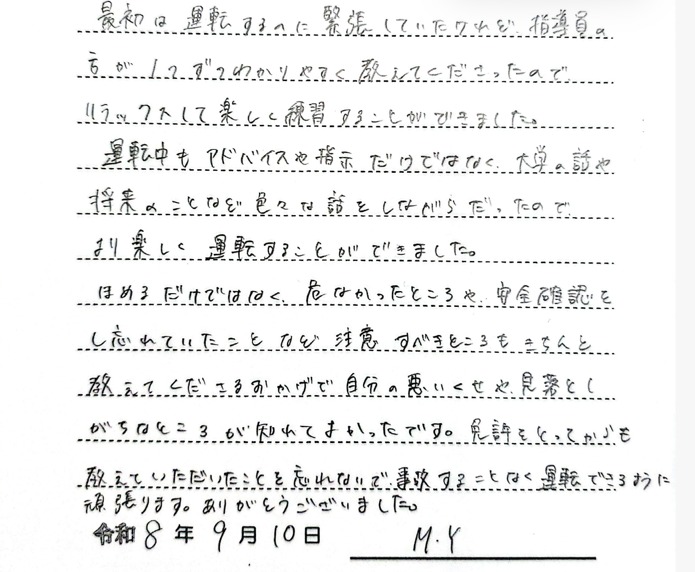 最初は運転するのに緊張していたけれど、指導員の
方が1つずつわかりやすく教えてくださったので
リラックスして楽しく練習することができました。
運転中もアドバイスや指示だけではなく、大学の話や
将来のことなど色々な話をしながらだったので、
より楽しく運転することができました。
ほめるだけではなく、危なかったところや、安全確認を
し忘れていたことなど注意すべきところもきちんと
教えてくださるおかげで自分の悪いくせや、見落とし
がちなところが知れてよかったです。免許をとってからも
教えていただいたことを忘れないで、事故することなく運転できるように
頑張ります。ありがとうございました。
令和8年9月10日 M.Y